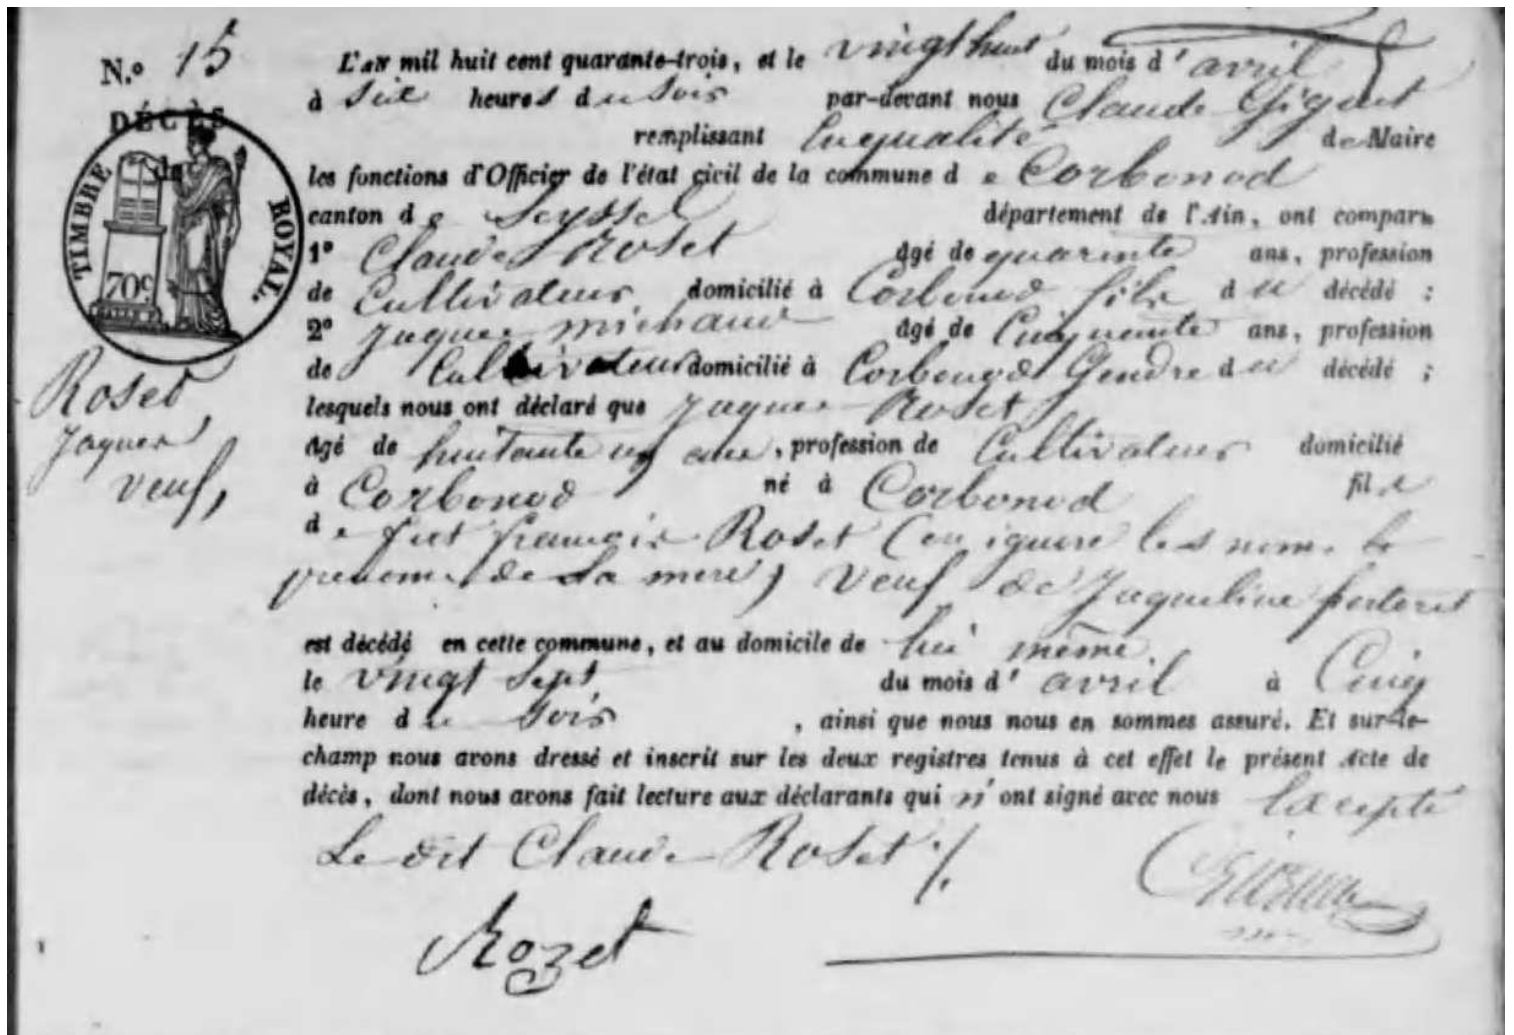 N.º 15
DÉCÈS
de
TIMBRE ROYAL.
70 c
Roset
Jaques
veuf,
L'AN mil huit cent quarante-trois, et le vingt huit du mois d'avril
à six heures du soir par-devant nous Claude Giguet
remplissant la qualité de Maire
les fonctions d'Officier de l'état civil de la commune de Corbonod
canton de Seyssel département de l'Ain, ont comparu
1º Claude Roset âgé de quarante ans, profession
de Cultivateur domicilié à Corbonod fils du décédé ;
2º Jaques michaud âgé de Cinquante ans, profession
de Cultivateur domicilié à Corbonod Gendre du décédé ;
lesquels nous ont déclaré que Jaques Roset
âgé de huitante un ans, profession de Cultivateur domicilié
à Corbonod né à Corbonod fils
de feu françois Roset (on ignore les noms &
prenoms de sa mere) veuf de Jaqueline
est décédé en cette commune, et au domicile de lui même.
le vingt sept du mois d'avril à Cinq
heure du soir, ainsi que nous nous en sommes assuré. Et sur-le-
champ nous avons dressé et inscrit sur les deux registres tenus à cet effet le présent Acte de
décès, dont nous avons fait lecture aux déclarants qui n'ont signé avec nous Excepté
Le dit Claude Roset ./.
Rozet